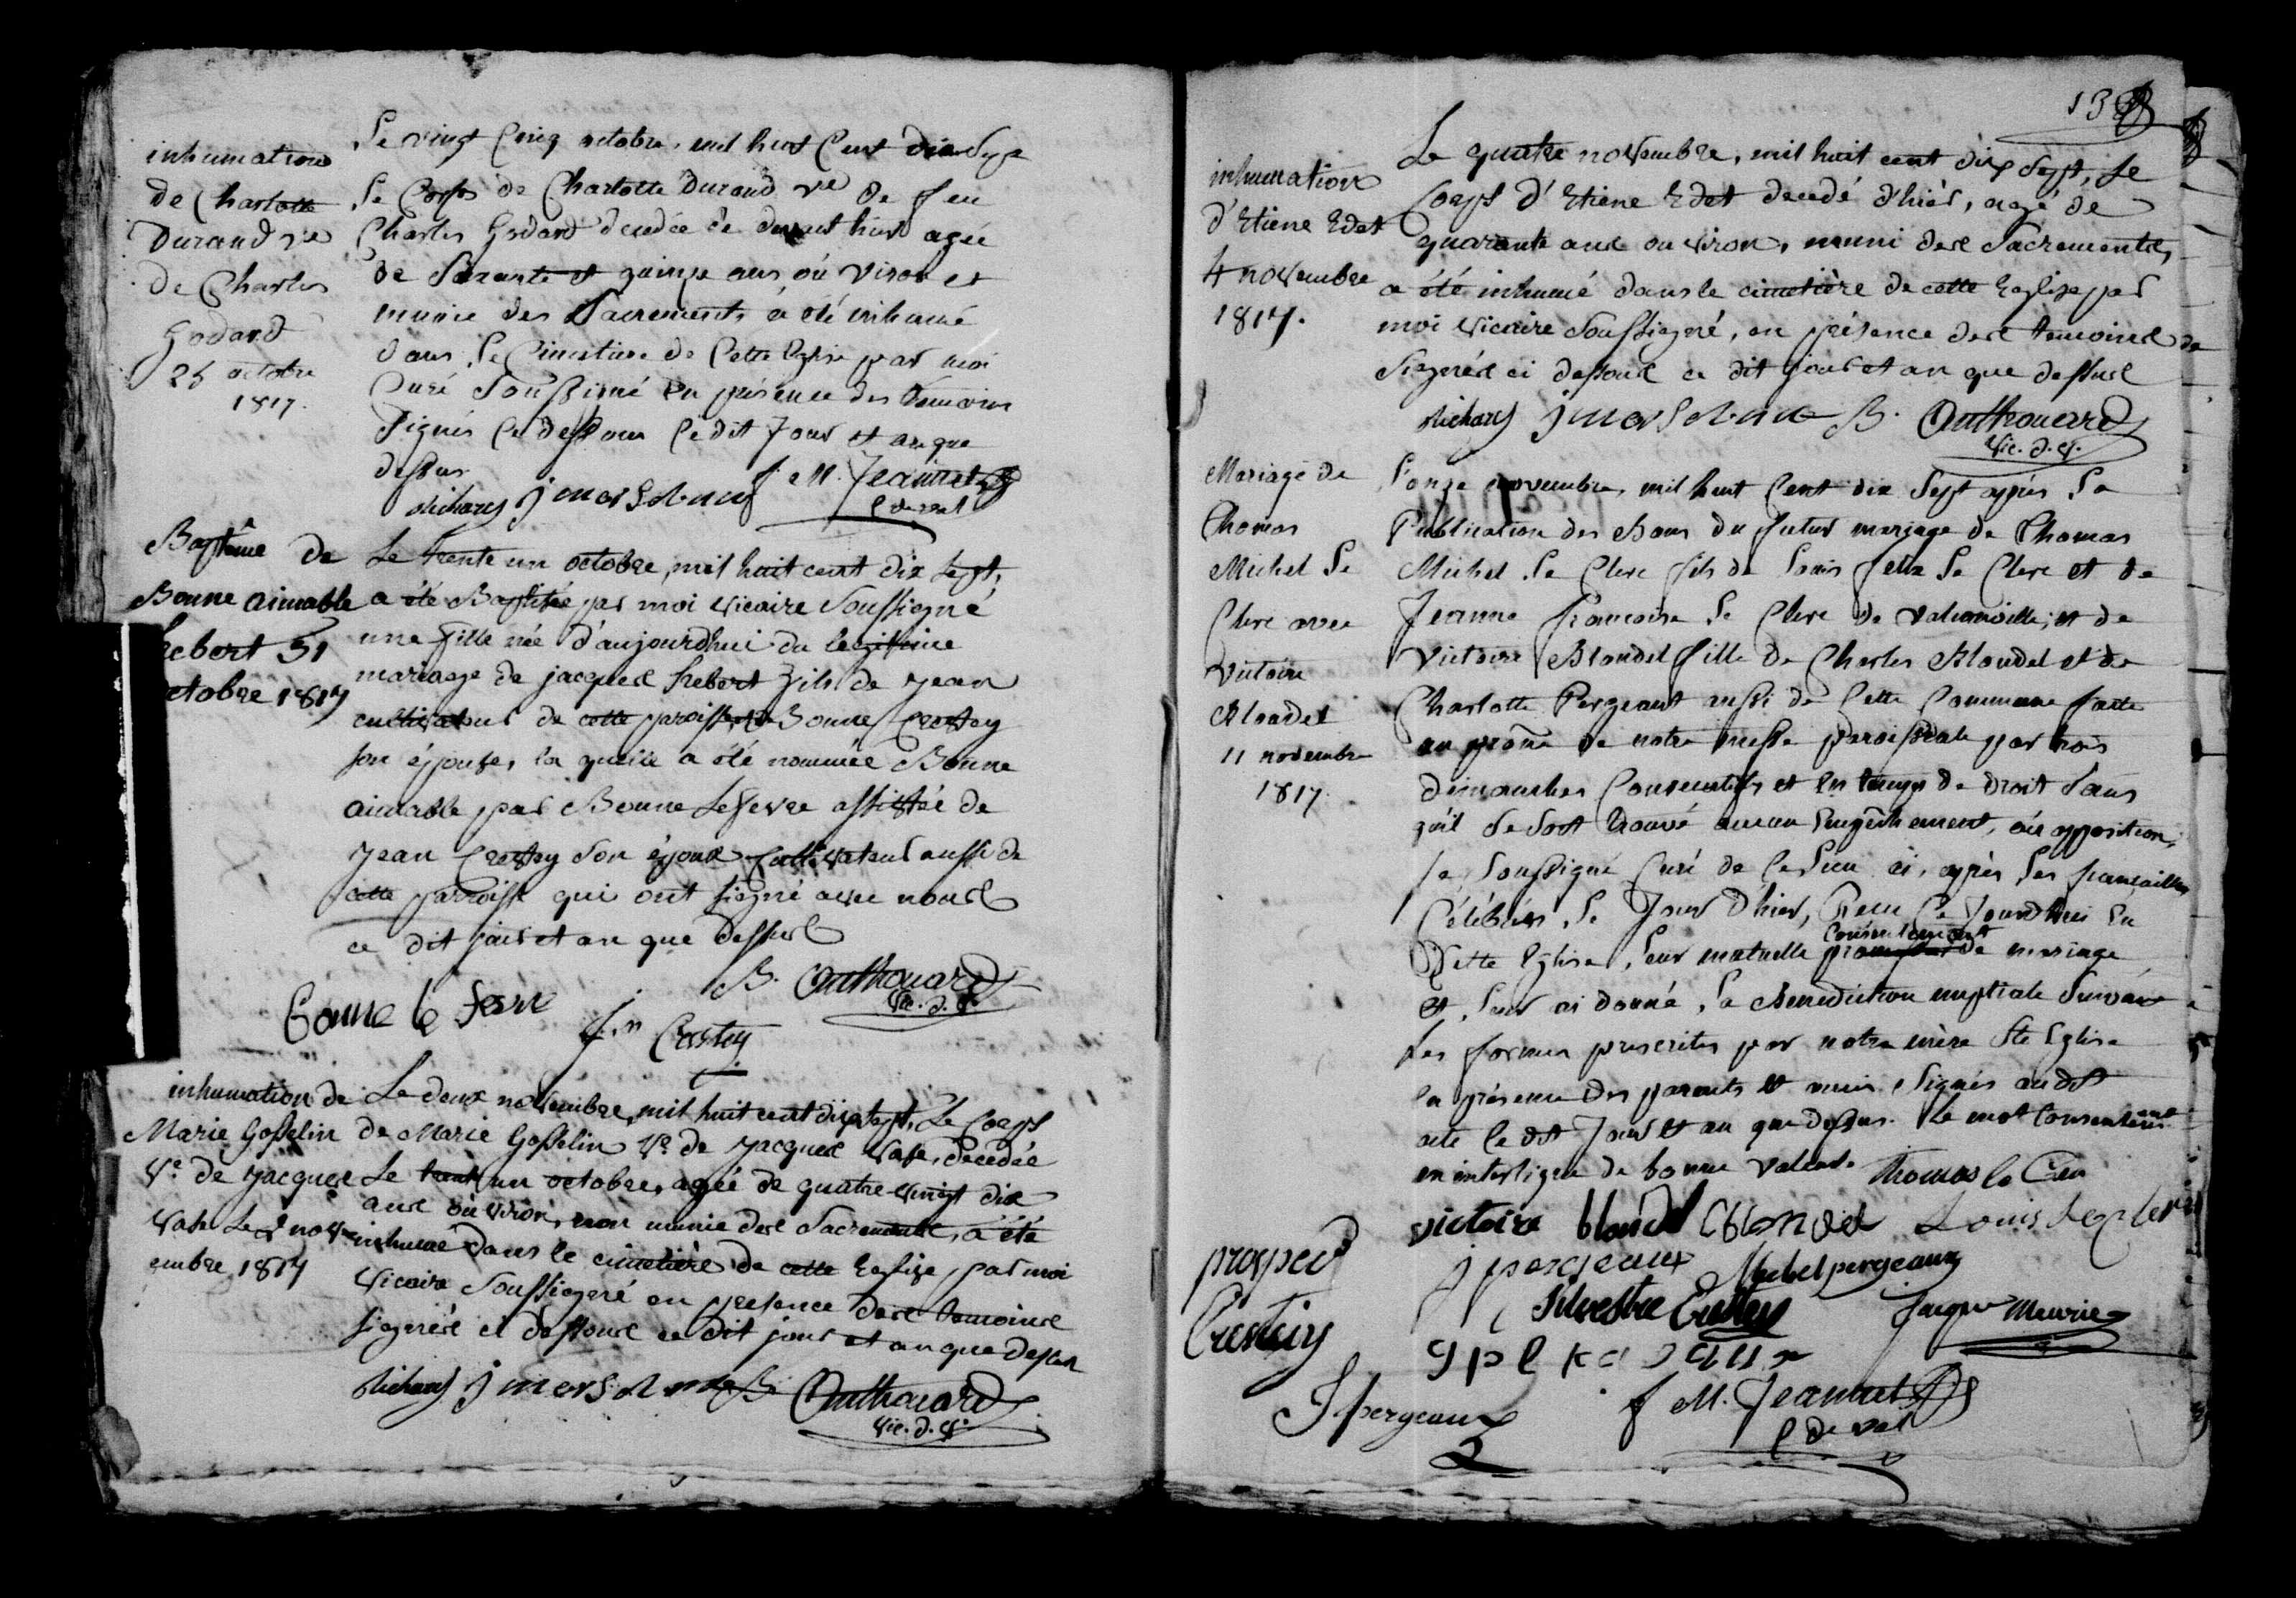 inhumation
de Charlotte
Durand ve
de Charles
Godard
25 octobre
1817.
Le vingt Cinq octobre, mil huit Cent dix Sept
Le Corps de Charlotte Durand ve de feu
Charles Godard decedée de devant hier agée
de Soixante et quinze ans, ou viron et
munie des Sacrements a été inhumé
dans Le Cimetiere de Cette Eglise par moi
Curé Soussigné En présence des temoins
Signés Ce dessous Ce dit Jour et an que
dessus
f. M. Jeannet
C de val
Baptême de
Bonne aimable
hebert 31
octobre 1817
Le trente un octobre, mil huit cent dix Sept,
a été Baptisée par moi vicaire Soussigné
une fille née d'aujourdhui du legitime
mariage de jacques hebert fils de jean
cultivateur de cette paroisse, et de Bonne Crestey
son épouse, la quelle a été nommée Bonne
aimable par Bonne Lefevre assistée de
jean Crestey Son époux Cultivateur aussi de
cette parroisse qui ont Signé avec nous
ce dit jour et an que Dessus
B. Outhouard
Vic. d. V.
Bonne le fevre
j.n Crestey
inhumation de
Marie Gosselin
Ve de jacques
Vase Le 2 nov-
embre 1817
Le deux novembre, mil huit cent dix Sept, Le Corps
de Marie Gosselin Ve de jacques Vase, decedée
Le trent un octobre, agée de quatre vingt dix
ans ou viron, non munie des Sacrements, a été
inhumé dans le cimetière de cette Eglise, par moi
vicaire Soussigné en presence des temoins
signés ci dessous ce dit jour et an que dessus
B. Outhouard
Vic. d. V.
inhumation
d'Etiene Edet
4 novembre
1817.
Le quatre novembre, mil huit cent dix Sept, Le
Corps d'Etiene Edet decedé d'hier, agé de
quarante ans ou viron, munni des Sacrements,
a été inhumé dans le cimetière de cette Eglise par
moi vicaire Soussigné, en présence des temoins
Signés ci dessous ce dit jour et an que dessus
B. Outhouard
Vic. d. V.
Mariage de
Thomas
Michel Le
Clerc avec
Victoire
Blondel
11 novembre
1817.
L'onze novembre, mil huit Cent dix Sept après La
Publication des Bans du futur mariage de Thomas
Michel Le Clerc fils de Louis felix Le Clerc et de
Jeanne francoise Le Clerc de valcanville; et de
Victoire Blondel fille de Charles Blondel et de
Charlotte Pergeant aussi de Cette Commune faite
au prône de notre messe paroissiale par trois
dimanches Consecutifs et En temps de droit Sans
qu'il Se Soit trouvé aucun Empêchement, ou opposition,
je Soussigné Curé de Ce Lieu ai, après Les fiancailles
Célébrées Le Jour d'hier, Recu Ce Jourdhui En
Cette Eglise, Leur mutuelle consentement de mariage
et Leur ai donné La Benediction nuptiale Suivant
Les formes prescrites par notre mère Ste Eglise
En présence des parents et amis, Signés au dit
acte Ce dit Jour et an que dessus. Le mot Consentement
en interligne de bonne valeur.
Thomas le Cler
victoire blondel
C blondel
prosper
Crestey
j pergeaux
Michel pergeaux
Silvestre Crestey
Jacque Meurie
J pergeaux
f M. Jeannet
C de val